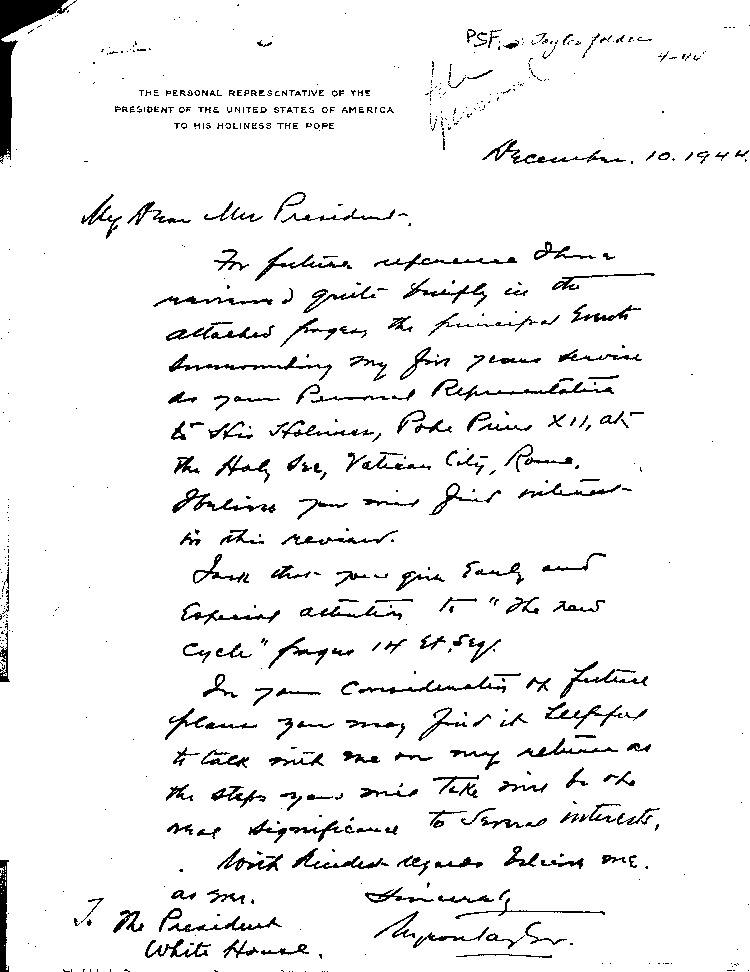 PSF. Taylor folder
4-44
file
personal
THE PERSONAL REPRESENTATIVE OF THE
PRESIDENT OF THE UNITED STATES OF AMERICA
TO HIS HOLINESS THE POPE
December. 10. 1944.
My Dear Mr President-,
For future reference I have
reviewed quite briefly in the
attached pages, the principal Events
surrounding my five years service
as your Personal Representative
to His Holiness, Pope Pius XII, at
the Holy See, Vatican City, Rome.
I believe you will find interest
in this review.
I ask that you give Early and
Especial attention to "The new
Cycle" pages 14 Et. Seq.
In your Consideration of future
plans you may find it helpful
to talk with me on my return as
the steps you will take will be of
real significance to several interests.
With kindest regards believe me.
as ever.
Sincerely
Myron Taylor.
To The President
White House.